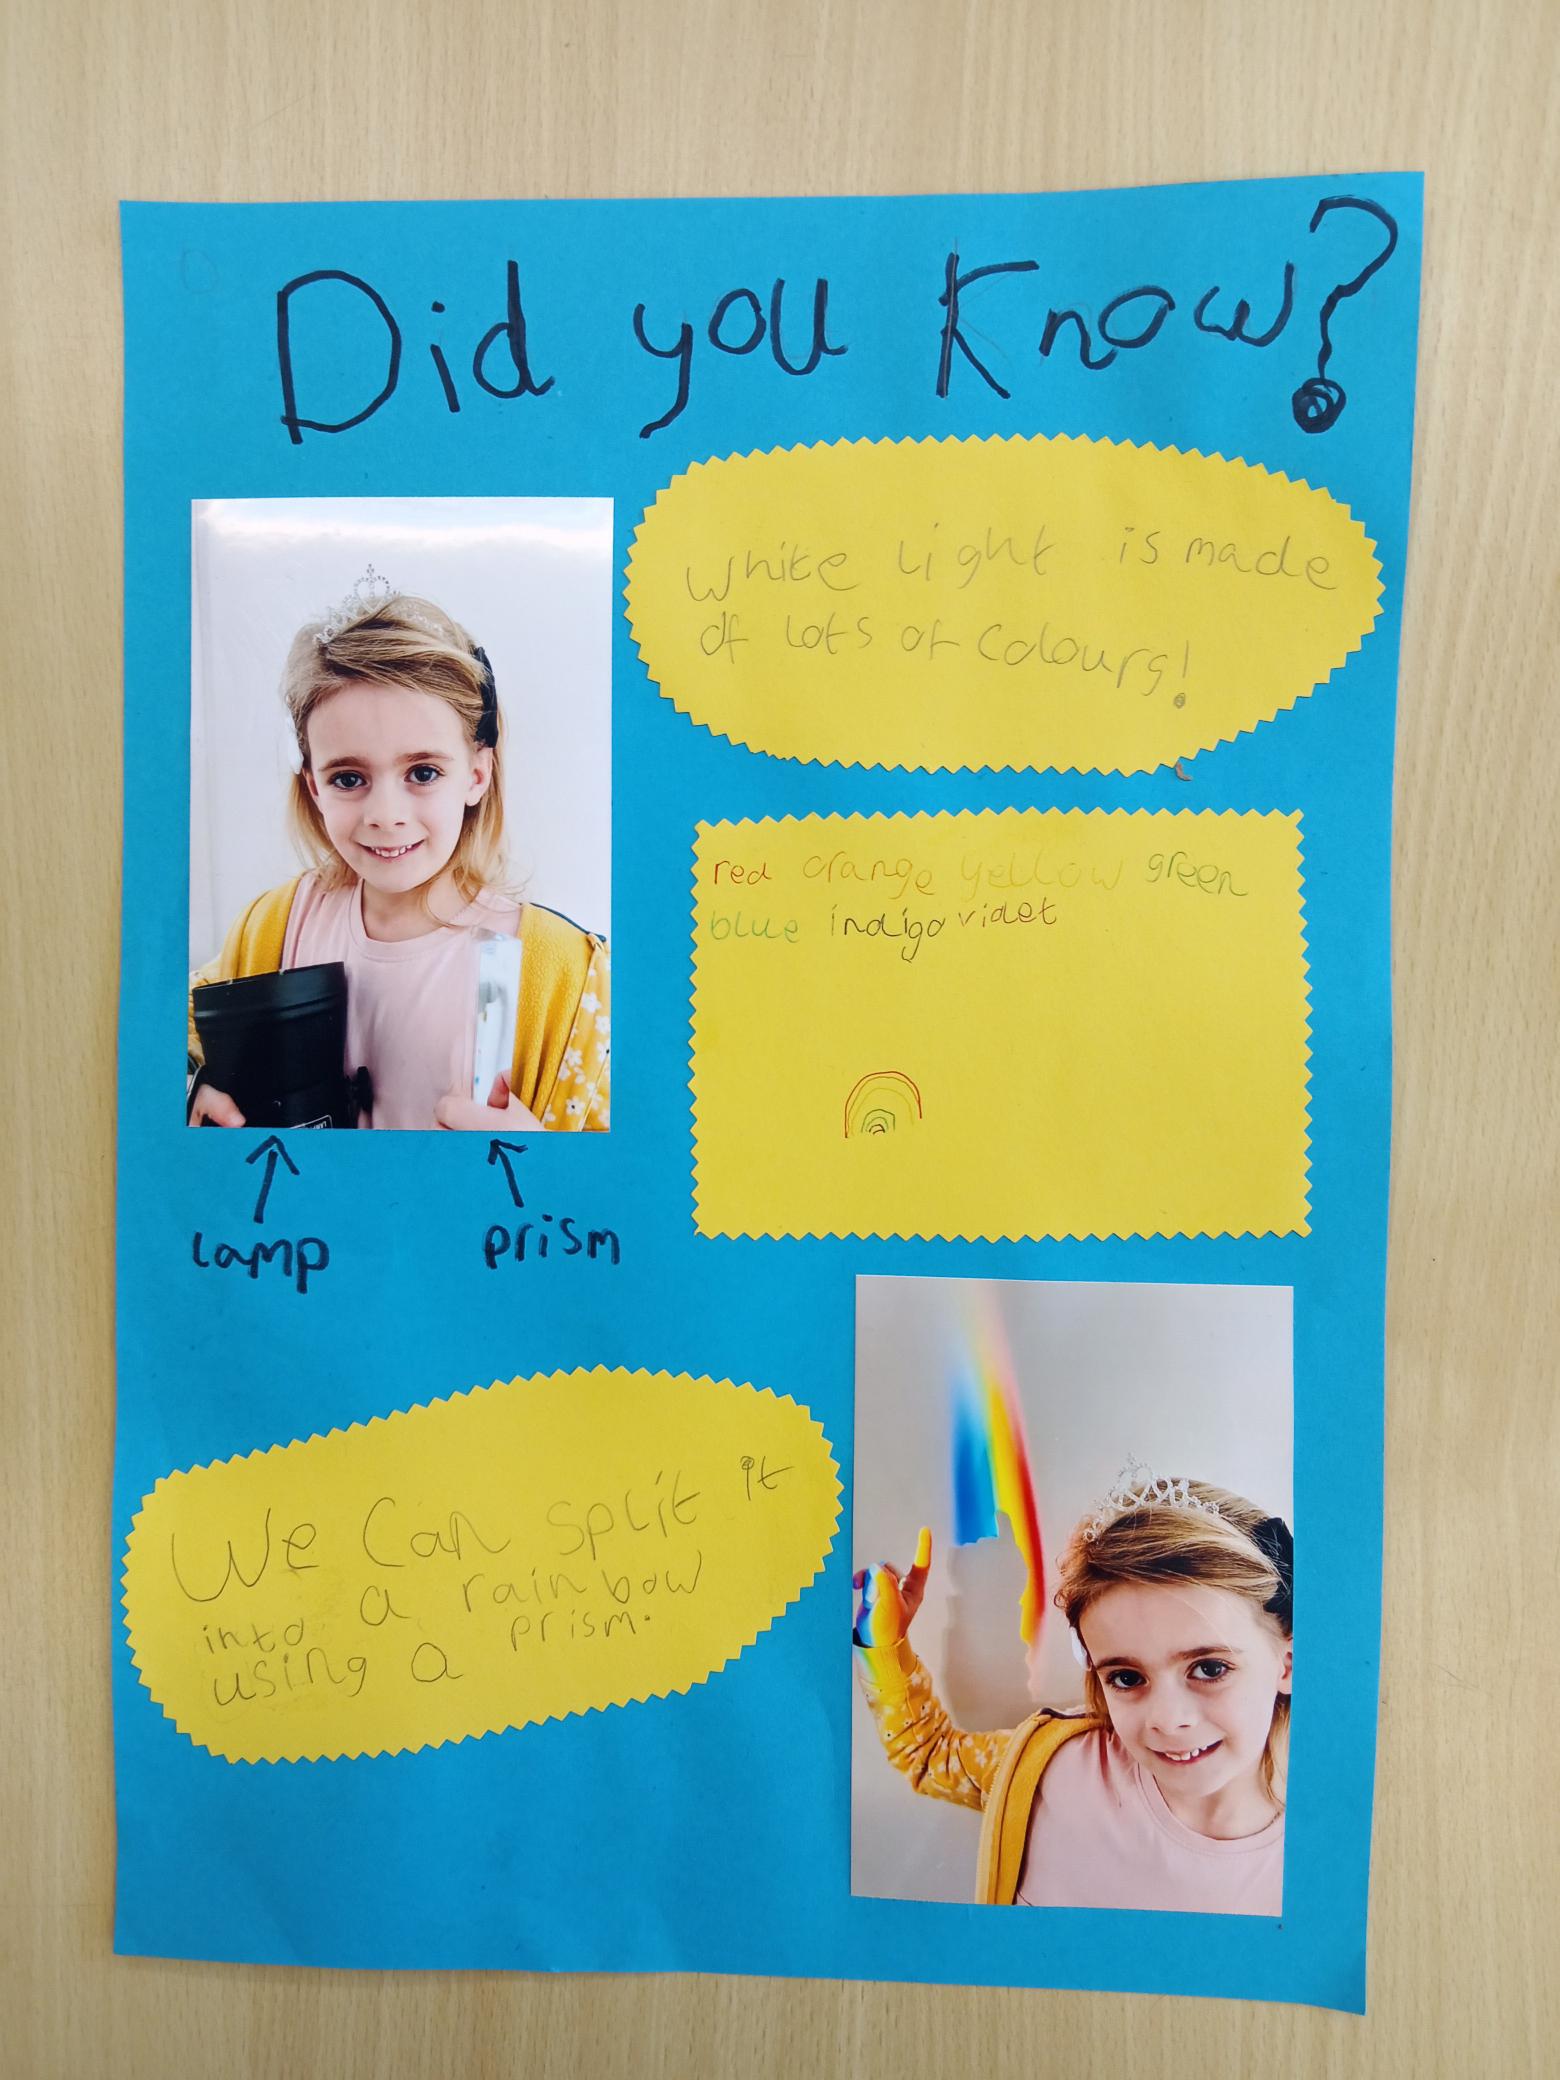 Did you Know?
White light is made
of lots of colours!
red orange yellow green
blue indigo violet
lamp
prism
We Can split it
into a rainbow
using a prism.